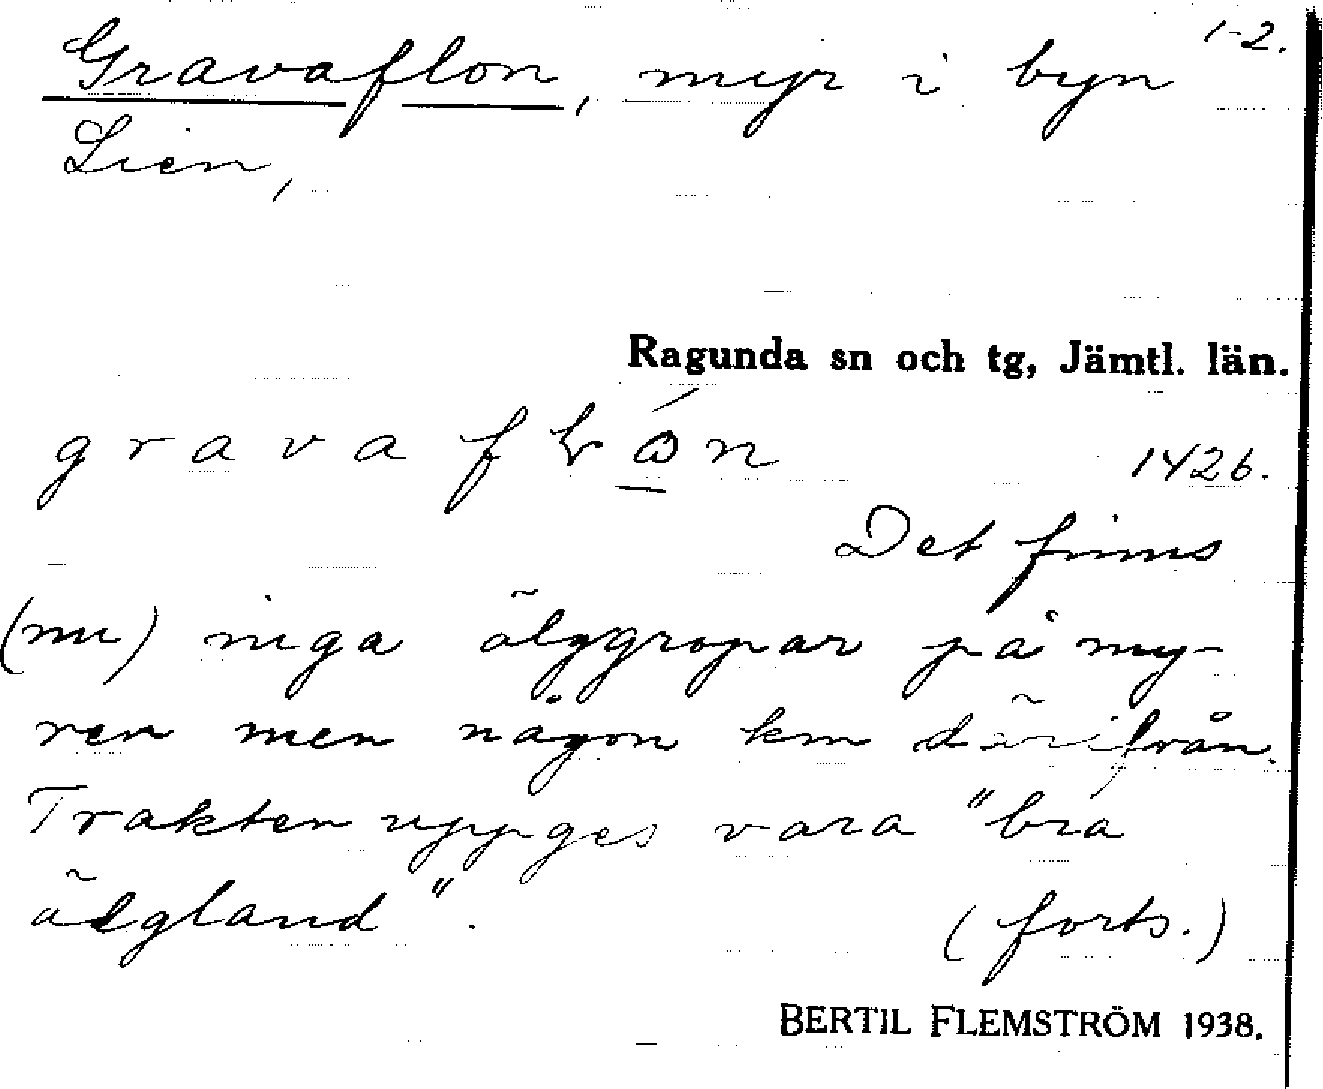 1-2.
Gravaflon, myr i byn
Lien,
Ragunda sn och tg, Jämtl. län.
1426.
Det finns
(nu) inga älggropar på my-
ren men någon km därifrån.
Trakten uppges vara "bra
älgland".
(forts.)
BERTIL FLEMSTRÖM 1938.